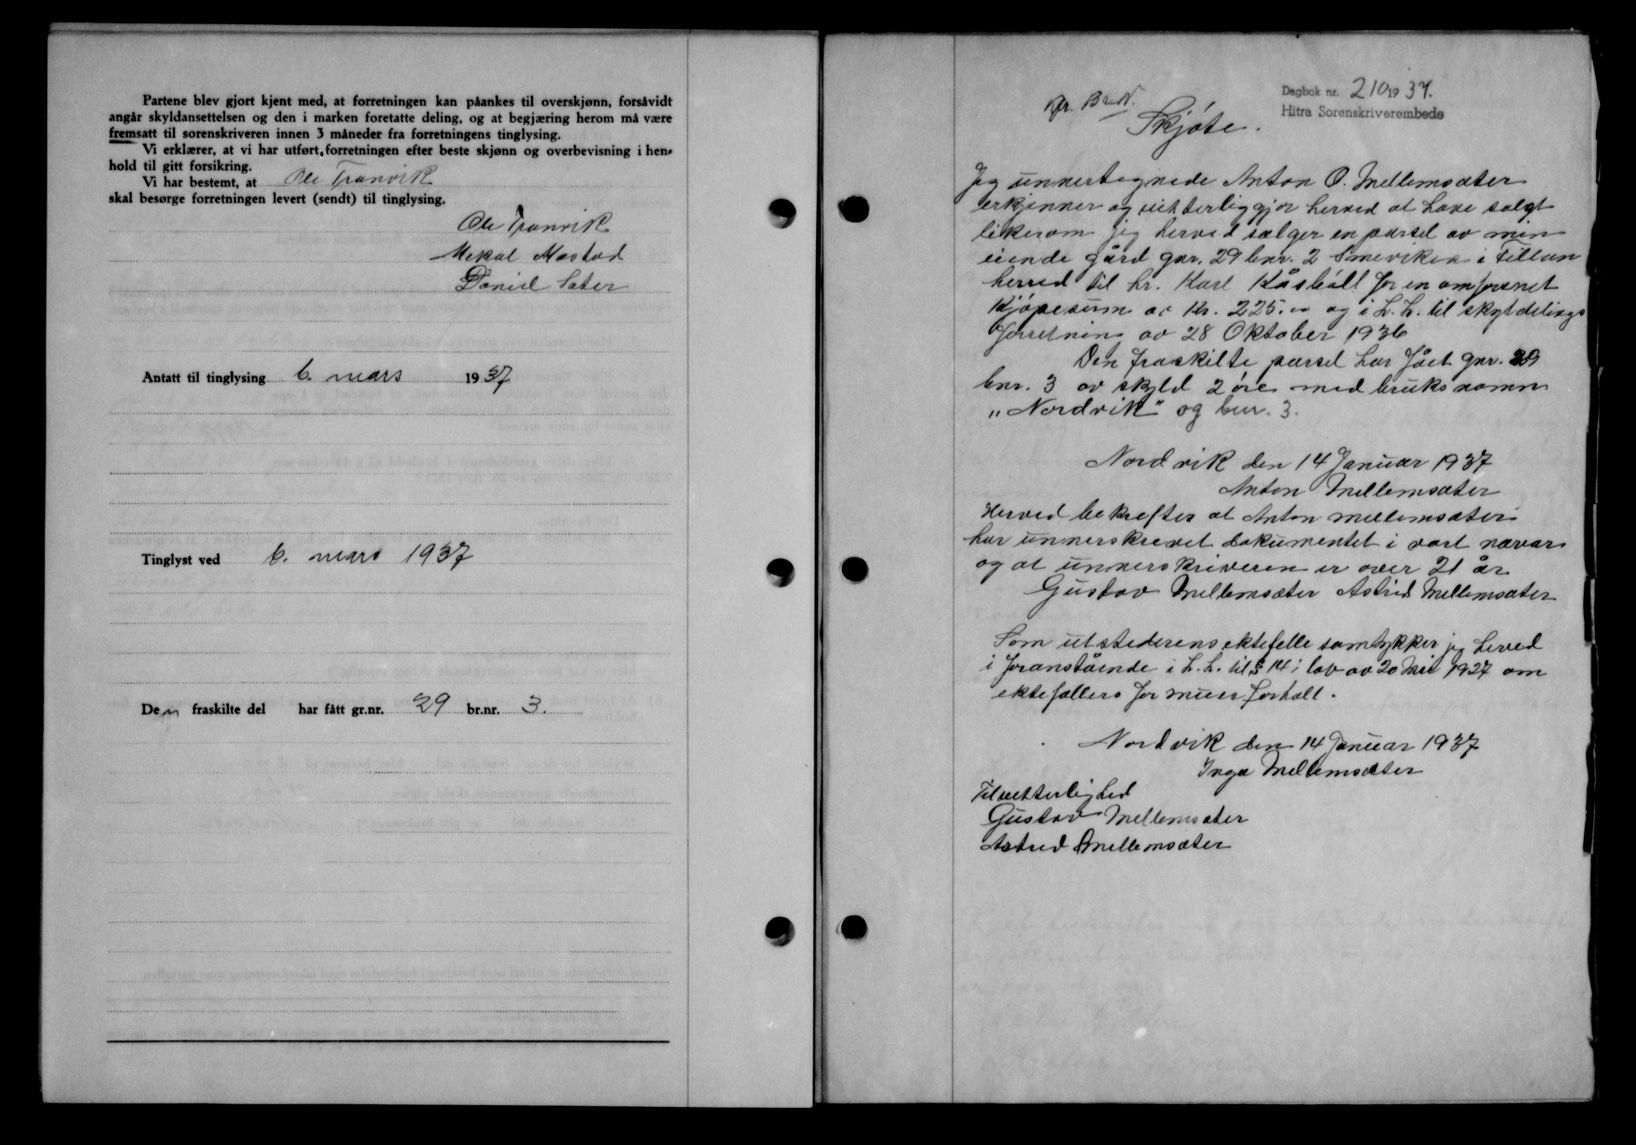 Partene blev gjort kjent med, at forretningen kan påankes til overskjønn, forsåvidt
angår skyldansettelsen og den i marken foretatte deling, og at begjæring herom må være
fremsatt til sorenskriveren innen 3 måneder fra forretningens tinglysing.
Vi erklærer, at vi har utført forretningen efter beste skjønn og overbevisning i hen-
hold til gitt forsikring.
Vi har bestemt, at Ole Tranvik
skal besørge forretningen levert (sendt) til tinglysing.
Ole Tranvik
Mekal Mastad
Daniel Sæter
Antatt til tinglysing 6. mars 1937
Tinglyst ved 6. mars 1937
Den fraskilte del har fått gr.nr. 29 br.nr. 3.
Dagbok nr. 210 1937.
Hitra Sorenskriverembede
Skjøte.
Jeg unnertegnede Anton O. Mellemsæter
erkjenner og vitterliggjør herved at have solgt
likesom jeg herved sælger en parsel av min
eiende gård gnr. 29 bnr. 2 Smeviken i Fillan
herred til hr. Karl Kåsbøll for en omforenet
Kjøpesum av Kr. 225.00 og i h. h. til skyldelings
forretning av 28 Oktober 1936
Den fraskilte parsel har fået gnr. 29
bnr. 3 av skyld 2 øre med bruksnamn
"Nordvik" og bnr. 3.
Nordvik den 14 Januar 1937
Anton Mellemsæter
Herved bekreftes at Anton Mellemsæter
har unnerskrevet dokumentet i vort nævær
og at unnerskriveren er over 21 år
Gustav Mellemsæter Astrid Mellemsæter
Som utstederens ektefelle samtykker jeg herved
i foranstående i h. h. til § 14 i lov av 20 Mai 1927 om
ektefællers formues forhold.
Nordvik den 14 Januar 1937
Inga Mellemsæter
Til vitterlighed
Gustav Mellemsæter
Astrid Mellemsæter